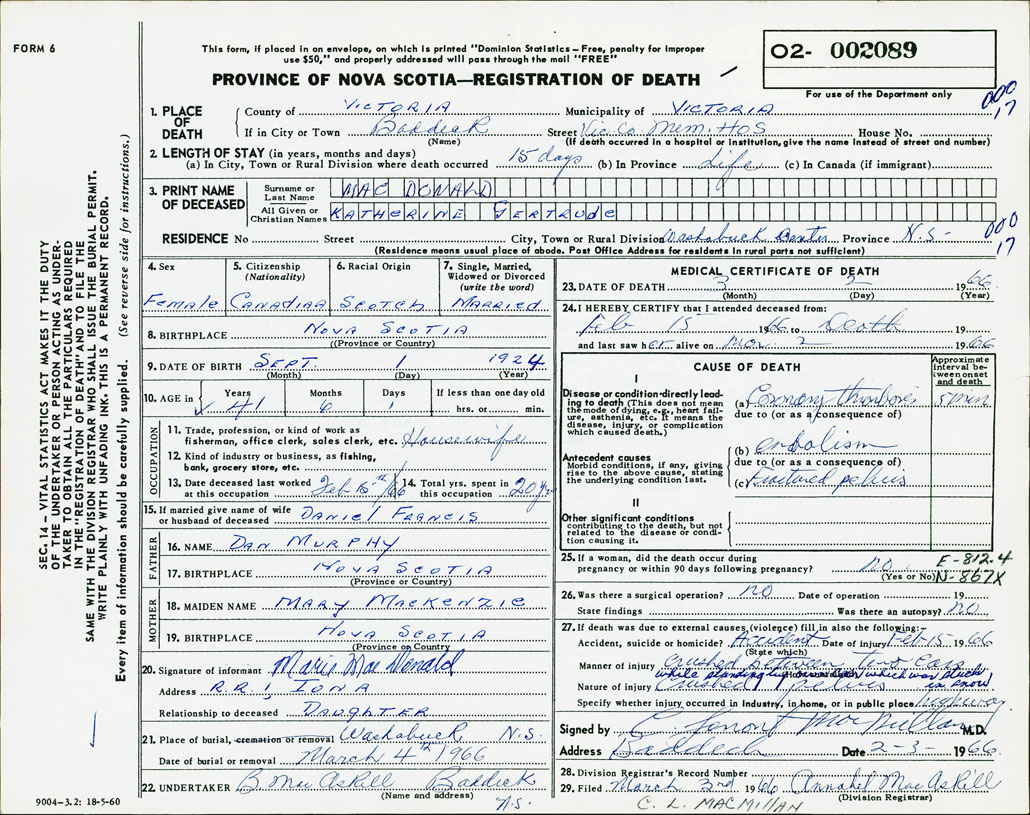 FORM 6
This form, if placed in an envelope, on which is printed "Dominion Statistics – Free, penalty for improper
use $50," and properly addressed will pass through the mail "FREE"
PROVINCE OF NOVA SCOTIA—REGISTRATION OF DEATH
O2- 002089
For use of the Department only
000
17
SEC. 14 – VITAL STATISTICS ACT MAKES IT THE DUTY
OF THE UNDERTAKER OR PERSON ACTING AS UNDER-
TAKER TO OBTAIN ALL THE PARTICULARS REQUIRED
IN THE "REGISTRATION OF DEATH" AND TO FILE THE
SAME WITH THE DIVISION REGISTRAR WHO SHALL ISSUE THE BURIAL PERMIT.
WRITE PLAINLY WITH UNFADING INK. THIS IS A PERMANENT RECORD.
Every item of information should be carefully supplied. (See reverse side for instructions.)
1. PLACE OF DEATH
County of VICTORIA Municipality of VICTORIA
If in City or Town Baddeck Street Vic. Co. Mem. Hos House No.
(Name) (If death occurred in a hospital or institution, give the name instead of street and number)
2. LENGTH OF STAY (in years, months and days)
(a) In City, Town or Rural Division where death occurred 15 days (b) In Province Life (c) In Canada (if immigrant)
3. PRINT NAME OF DECEASED
Surname or Last Name MAC DONALD
All Given or Christian Names KATHERINE GERTRUDE
RESIDENCE No Street City, Town or Rural Division Washabuck Center Province N.S-
000
17
(Residence means usual place of abode. Post Office Address for residents in rural parts not sufficient)
4. Sex Female
5. Citizenship (Nationality) Canadian
6. Racial Origin Scotch
7. Single, Married, Widowed or Divorced (write the word) Married
8. BIRTHPLACE NOVA SCOTIA
(Province or Country)
9. DATE OF BIRTH SEPT. 1 1924
(Month) (Day) (Year)
10. AGE in Years Months Days If less than one day old
41 6 1 hrs. or min.
OCCUPATION
11. Trade, profession, or kind of work as
fisherman, office clerk, sales clerk, etc. Housewife
12. Kind of industry or business, as fishing,
bank, grocery store, etc.
13. Date deceased last worked at this occupation Feb 15th/66
14. Total yrs. spent in this occupation 20 yrs
15. If married give name of wife
or husband of deceased DANIEL FRANCIS
FATHER
16. NAME DAN MURPHY
17. BIRTHPLACE NOVA SCOTIA
(Province or Country)
MOTHER
18. MAIDEN NAME MARY MACKENZIE
19. BIRTHPLACE NOVA SCOTIA
(Province or Country)
20. Signature of informant Marie MacDonald
Address R.R. 1, IONA
Relationship to deceased DAUGHTER
21. Place of burial, cremation or removal Washabuck N.S.
Date of burial or removal March 4th 1966
22. UNDERTAKER B. MacAskill Baddeck
(Name and address) N.S.
9004-3.2: 18-5-60
MEDICAL CERTIFICATE OF DEATH
23. DATE OF DEATH 3 2 1966
(Month) (Day) (Year)
24. I HEREBY CERTIFY that I attended deceased from:
Feb 15 1966 to Death 19
and last saw her alive on Mar. 2 1966
CAUSE OF DEATH
Approximate interval between onset and death
I
Disease or condition directly lead-
ing to death (This does not mean
the mode of dying, e.g., heart fail-
ure, asthenia, etc. It means the
disease, injury, or complication
which caused death.)
(a) Coronary thrombosis 5 min
due to (or as a consequence of)
Antecedent causes
Morbid conditions, if any, giving
rise to the above cause, stating
the underlying condition last.
(b) embolism
due to (or as a consequence of)
(c) Fractured pelvis
II
Other significant conditions
contributing to the death, but not
related to the disease or condi-
tion causing it.
25. If a woman, did the death occur during
pregnancy or within 90 days following pregnancy? no
(Yes or No)
E-812.4
N-867X
26. Was there a surgical operation? no Date of operation 19
State findings Was there an autopsy? no
27. If death was due to external causes (violence) fill in also the following:–
Accident, suicide or homicide? Accident Date of injury Feb 15 1966
(State which)
Manner of injury Crushed between two cars
while standing which was stuck
Nature of injury Crushed pelvis in snow
Specify whether injury occurred in Industry, in home, or in public place highway.
Signed by C. Lamont MacMillan M.D.
Address Baddeck Date 2-3- 1966
28. Division Registrar's Record Number
29. Filed March 3rd 1966 Annabel MacAskill
(Division Registrar)
C. L. MACMILLAN